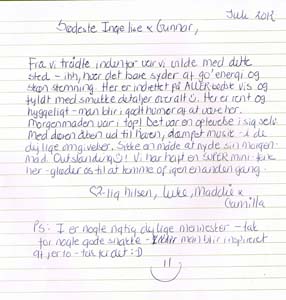 Juli 2012
Sødeste Inge lise & Gunnar,
Fra vi trådte indenfor var vi vilde med dette
sted - ihh, hvor det bare syder af go' energi og
skøn stemning. Her er indrettet på ALLER bedste vis og
fyldt med smukke detaljer overalt. Her er rent og
hyggeligt - man blir i godt humør af at være her.
Morgenmaden var i top! Det var en oplevelse i sig selv.
Med døren åben ud til haven, dæmpet musik - i de
dejlige omgivelser. Sikke en måde at nyde sin morgen-
mad. Outstanding! Vi har højt en super mini-ferie
her - glæder os til at komme af igen en anden gang.
♡-lig hilsen, Luke, Maddie &
Camilla
PS: I er nogle rigtig dejlige mennesker - tak
for nogle gode snakke - man blir inspireret
af jer to - tak for det :D